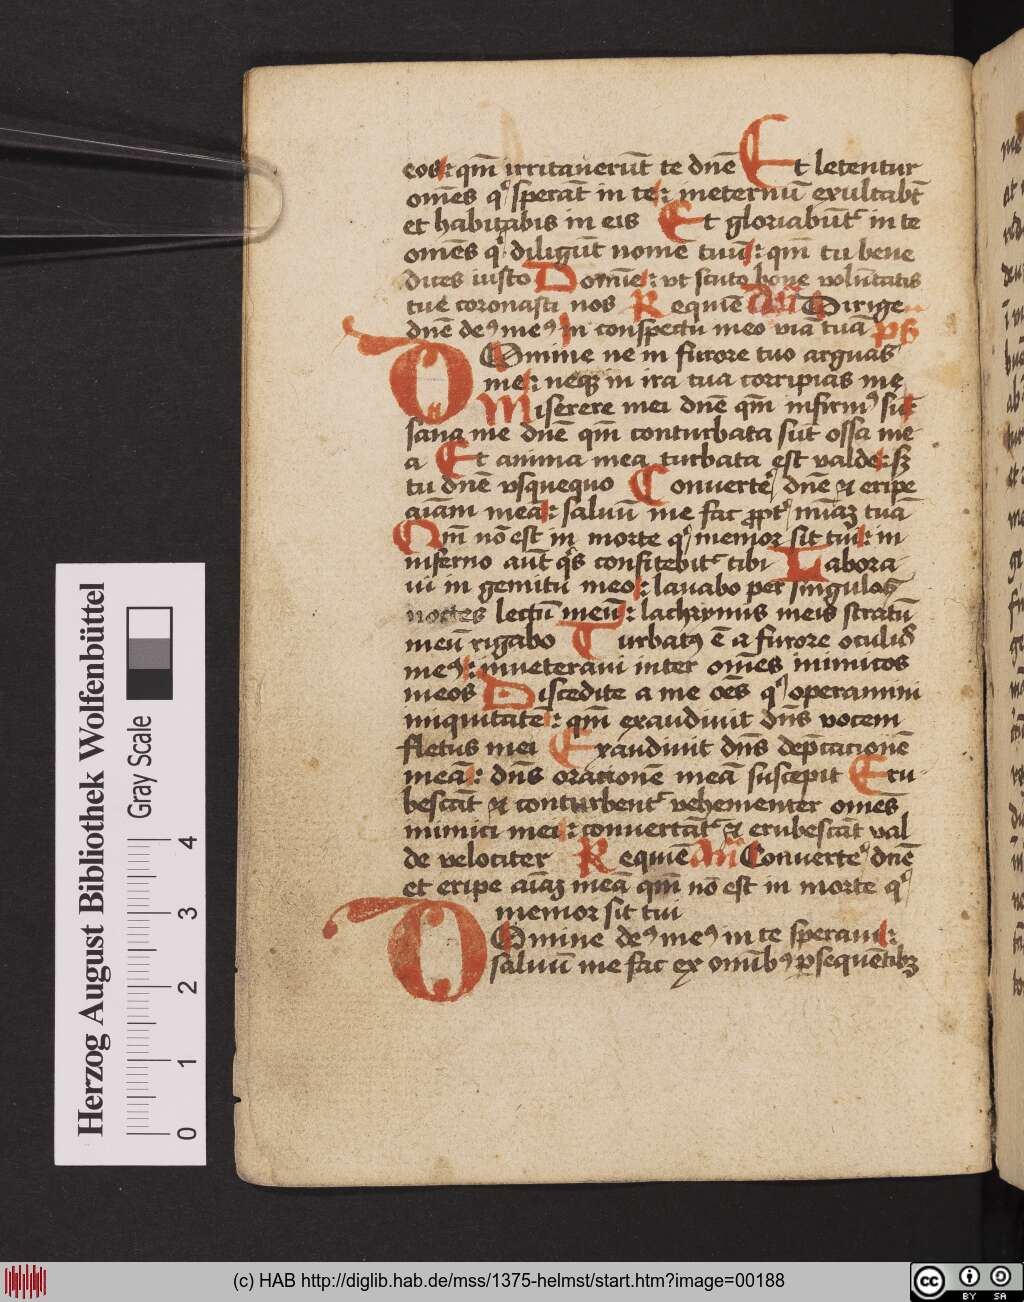 eos: qm̄ irritauerūt te dnē Et letentur
om̄es q' sperāt in te: ineternū exultabt̄
et habitabis in eis Et gloriabūt' in te
om̄es q' diligūt nomē tuū: qm̄ tu bene
dices iusto Domīe: vt scuto bone volūtatis
tue coronasti nos Requiē An̄ Dirige
dnē de9 me9 in conspectu meo viā tuā ps̄
Domine ne in furore tuo arguas
me: neqꝫ in ira tua corripias me
Miserere mei dnē qm̄ infirm9 sū:
sana me dnē qm̄ conturbata sūt ossa me
a Et anima mea turbata est valde: sꝫ
tu dnē vsquequo Conuerte' dnē ⁊ eripe
aīam meā: saluū me fac ꝓpt' mīaꝫ tuā
Qm̄ nō est in morte q' memor sit tui: in
inferno aūt q's confitebit' tibi Labora
ui in gemitu meo: lauabo per singulos
noctes lectū meū: lachrymis meis stratū
meū rigabo Turbat9 ē a furore oculus
me9: inueteraui inter om̄es inimicos
meos Discedite a me oēs q' operamini
iniquitatē: qm̄ exaudiuit dn̄s vocem
fletus mei Exaudiuit dn̄s dep̄cationē
meā: dn̄s orationē meā suscepit Eru-
bescāt ⁊ conturbent' vehementer om̄es
inimici mei: conuertāt' ⁊ erubescāt val
de velociter Requiē An̄ Conuerte' dnē
et eripe aīaꝫ meā qm̄ nō est in morte q'
memor sit tui
Domine de9 me9 in te speraui:
saluū me fac ex omīb9 ꝑsequētibꝫ
Herzog August Bibliothek Wolfenbüttel
Gray Scale
0 1 2 3 4
(c) HAB http://diglib.hab.de/mss/1375-helmst/start.htm?image=00188
cc BY SA